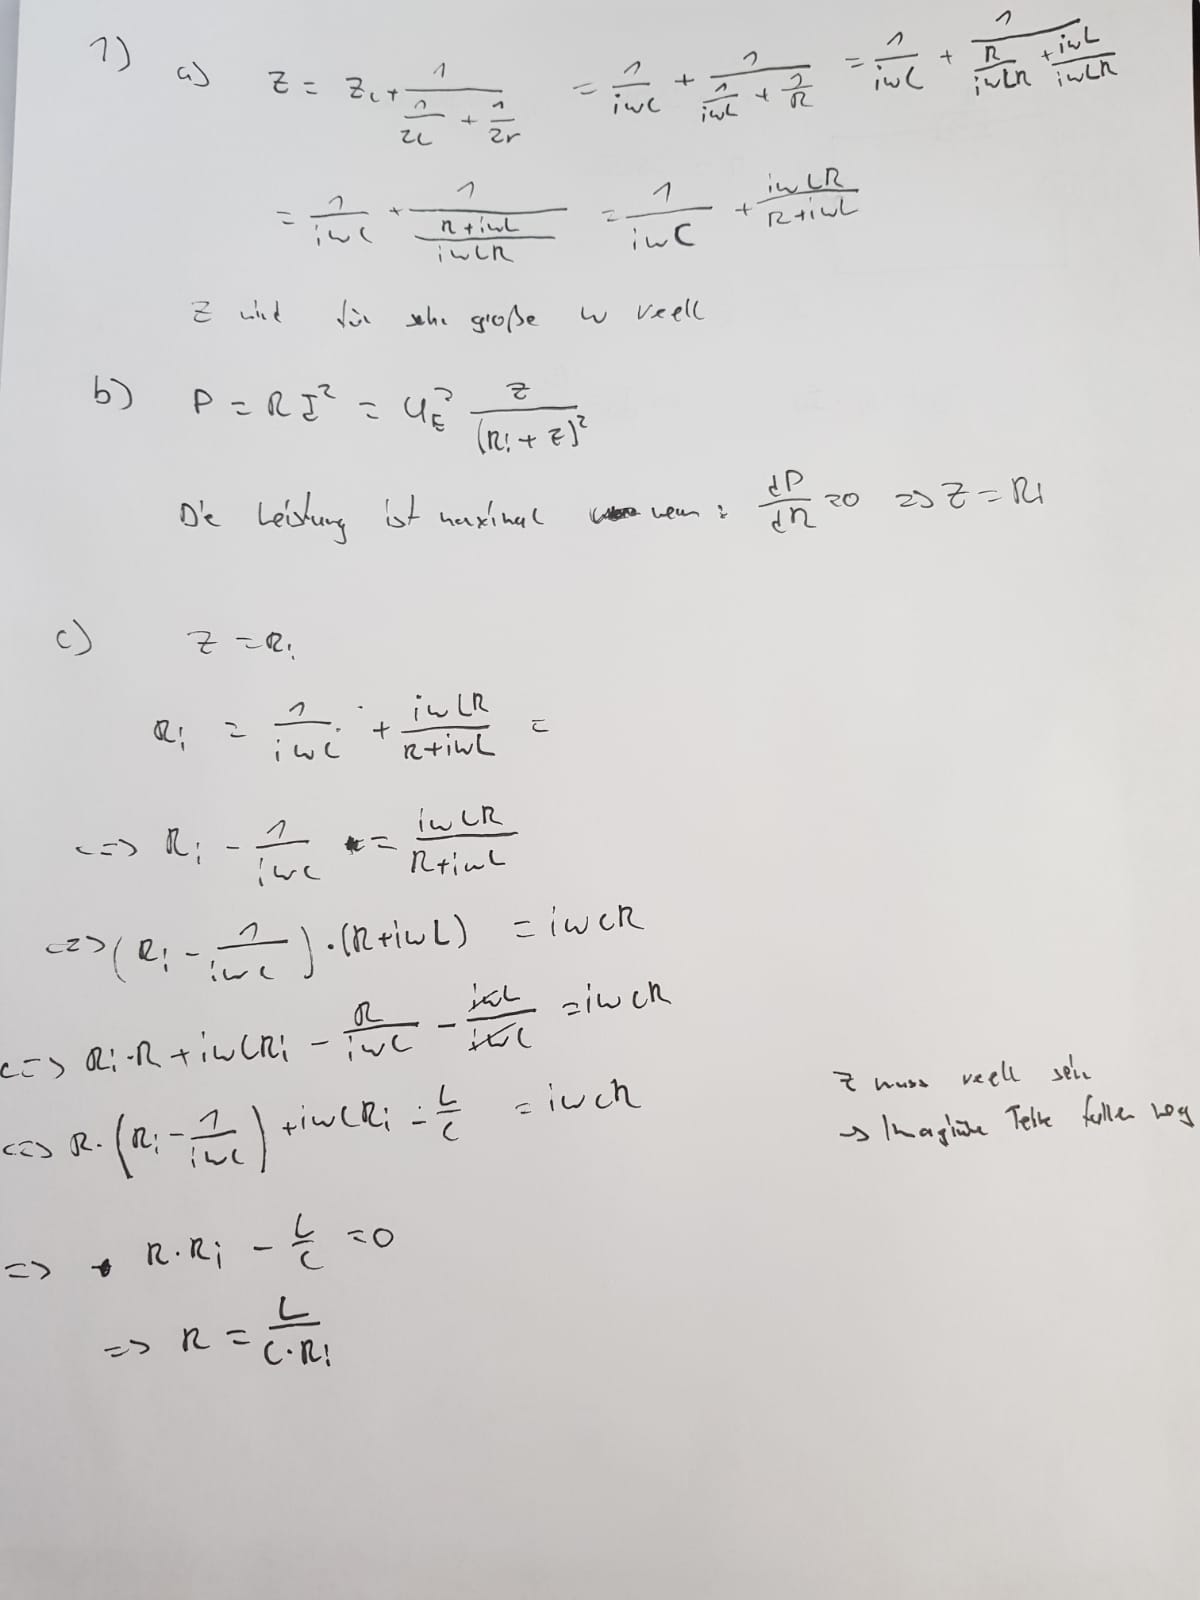 1) a) Z = Z_C + 1/(1/Z_L + 1/Z_r) = 1/(iωC) + 1/(1/(iωL) + 1/R) = 1/(iωC) + 1/(R/(iωLR) + iωL/(iωLR))
= 1/(iωC) + 1/((R+iωL)/(iωLR)) = 1/(iωC) + iωLR/(R+iωL)
Z wird für sehr große ω reell
b) P = R I² = U_E² Z/(R_i + Z)²
Die Leistung ist maximal wenn : dP/dR = 0 => Z = R_i
c) Z = R_i
R_i = 1/(iωC) + iωLR/(R+iωL) =
<=> R_i - 1/(iωC) = iωLR/(R+iωL)
<=> (R_i - 1/(iωC)) · (R+iωL) = iωLR
<=> R_i·R + iωLR_i - R/(iωC) - iωL/(iωC) = iωLR
<=> R·(R_i - 1/(iωC)) + iωLR_i - L/C = iωLR
Z muss reell sein
→ Imaginäre Teile fallen weg
=> R·R_i - L/C = 0
=> R = L/(C·R_i)